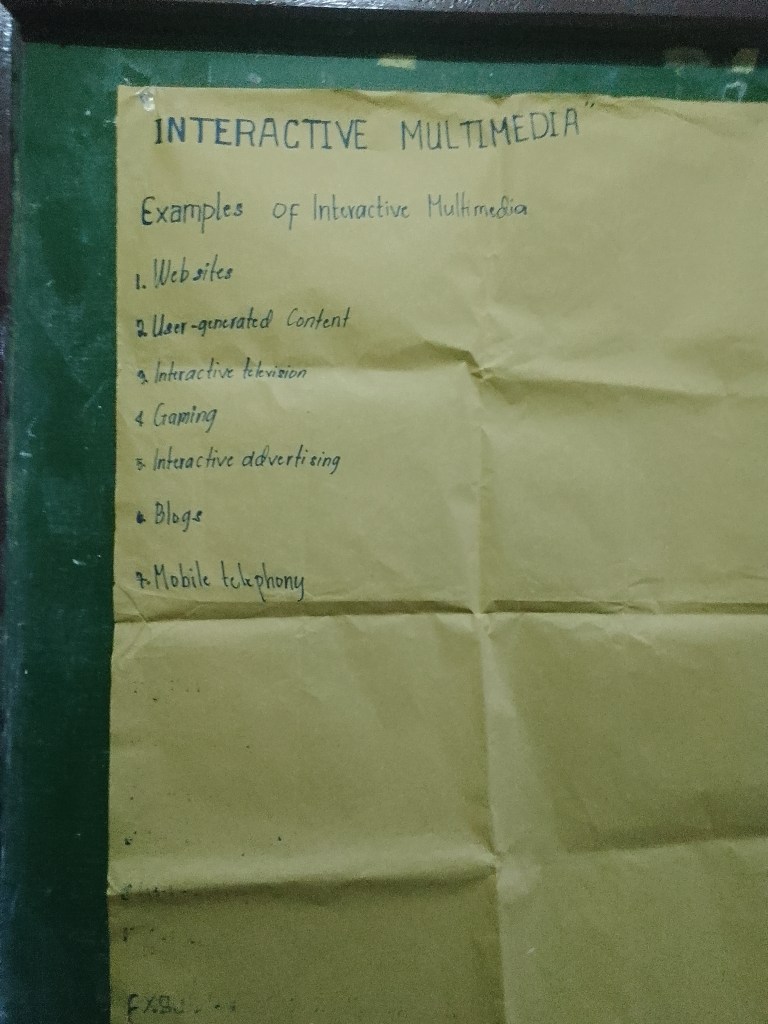 INTERACTIVE MULTIMEDIA"
Examples of Interactive Multimedia
1. Websites
2. User-generated Content
3. Interactive television
4. Gaming
5. Interactive advertising
6. Blogs
7. Mobile telephony